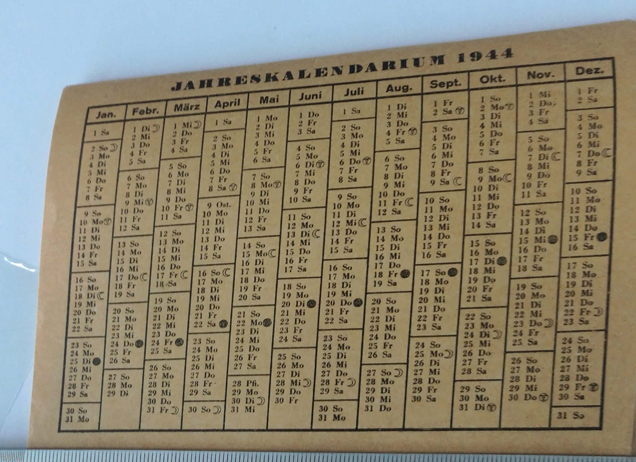 JAHRESKALENDARIUM 1944
Jan. Febr. März April Mai Juni Juli Aug. Sept. Okt. Nov. Dez.
1 Sa 1 Di 1 Mi 1 Sa 1 Mo 1 Do 1 Sa 1 Di 1 Fr 1 So 1 Mi 1 Fr
2 So 2 Mi 2 Do 2 So 2 Di 2 Fr 2 So 2 Mi 2 Sa 2 Mo 2 Do 2 Sa
3 Mo 3 Do 3 Fr 3 Mo 3 Mi 3 Sa 3 Mo 3 Do 3 So 3 Di 3 Fr 3 So
4 Di 4 Fr 4 Sa 4 Di 4 Do 4 So 4 Di 4 Fr 4 Mo 4 Mi 4 Sa 4 Mo
5 Mi 5 Sa 5 So 5 Mi 5 Fr 5 Mo 5 Mi 5 Sa 5 Di 5 Do 5 So 5 Di
6 Do 6 So 6 Mo 6 Do 6 Sa 6 Di 6 Do 6 So 6 Mi 6 Fr 6 Mo 6 Mi
7 Fr 7 Mo 7 Di 7 Fr 7 So 7 Mi 7 Fr 7 Mo 7 Do 7 Sa 7 Di 7 Do
8 Sa 8 Di 8 Mi 8 Sa 8 Mo 8 Do 8 Sa 8 Di 8 Fr 8 So 8 Mi 8 Fr
9 So 9 Mi 9 Do 9 Ost. 9 Di 9 Fr 9 So 9 Mi 9 Sa 9 Mo 9 Do 9 Sa
10 Mo 10 Do 10 Fr 10 Mo 10 Mi 10 Sa 10 Mo 10 Do 10 So 10 Di 10 Fr 10 So
11 Di 11 Fr 11 Sa 11 Di 11 Do 11 So 11 Di 11 Fr 11 Mo 11 Mi 11 Sa 11 Mo
12 Mi 12 Sa 12 So 12 Mi 12 Fr 12 Mo 12 Mi 12 Sa 12 Di 12 Do 12 So 12 Di
13 Do 13 So 13 Mo 13 Do 13 Sa 13 Di 13 Do 13 So 13 Mi 13 Fr 13 Mo 13 Mi
14 Fr 14 Mo 14 Di 14 Fr 14 So 14 Mi 14 Fr 14 Mo 14 Do 14 Sa 14 Di 14 Do
15 Sa 15 Di 15 Mi 15 Sa 15 Mo 15 Do 15 Sa 15 Di 15 Fr 15 So 15 Mi 15 Fr
16 So 16 Mi 16 Do 16 So 16 Di 16 Fr 16 So 16 Mi 16 Sa 16 Mo 16 Do 16 Sa
17 Mo 17 Do 17 Fr 17 Mo 17 Mi 17 Sa 17 Mo 17 Do 17 So 17 Di 17 Fr 17 So
18 Di 18 Fr 18 Sa 18 Di 18 Do 18 So 18 Di 18 Fr 18 Mo 18 Mi 18 Sa 18 Mo
19 Mi 19 Sa 19 So 19 Mi 19 Fr 19 Mo 19 Mi 19 Sa 19 Di 19 Do 19 So 19 Di
20 Do 20 So 20 Mo 20 Do 20 Sa 20 Di 20 Do 20 So 20 Mi 20 Fr 20 Mo 20 Mi
21 Fr 21 Mo 21 Di 21 Fr 21 So 21 Mi 21 Fr 21 Mo 21 Do 21 Sa 21 Di 21 Do
22 Sa 22 Di 22 Mi 22 Sa 22 Mo 22 Do 22 Sa 22 Di 22 Fr 22 So 22 Mi 22 Fr
23 So 23 Mi 23 Do 23 So 23 Di 23 Fr 23 So 23 Mi 23 Sa 23 Mo 23 Do 23 Sa
24 Mo 24 Do 24 Fr 24 Mo 24 Mi 24 Sa 24 Mo 24 Do 24 So 24 Di 24 Fr 24 So
25 Di 25 Fr 25 Sa 25 Di 25 Do 25 So 25 Di 25 Fr 25 Mo 25 Mi 25 Sa 25 Mo
26 Mi 26 Sa 26 So 26 Mi 26 Fr 26 Mo 26 Mi 26 Sa 26 Di 26 Do 26 So 26 Di
27 Do 27 So 27 Mo 27 Do 27 Sa 27 Di 27 Do 27 So 27 Mi 27 Fr 27 Mo 27 Mi
28 Fr 28 Mo 28 Di 28 Fr 28 Pfi. 28 Mi 28 Fr 28 Mo 28 Do 28 Sa 28 Di 28 Do
29 Sa 29 Di 29 Mi 29 Sa 29 Mo 29 Do 29 Sa 29 Di 29 Fr 29 So 29 Mi 29 Fr
30 So 30 Do 30 So 30 Di 30 Fr 30 So 30 Mi 30 Sa 30 Mo 30 Do 30 Sa
31 Mo 31 Fr 31 Mi 31 Mo 31 Do 31 Di 31 So